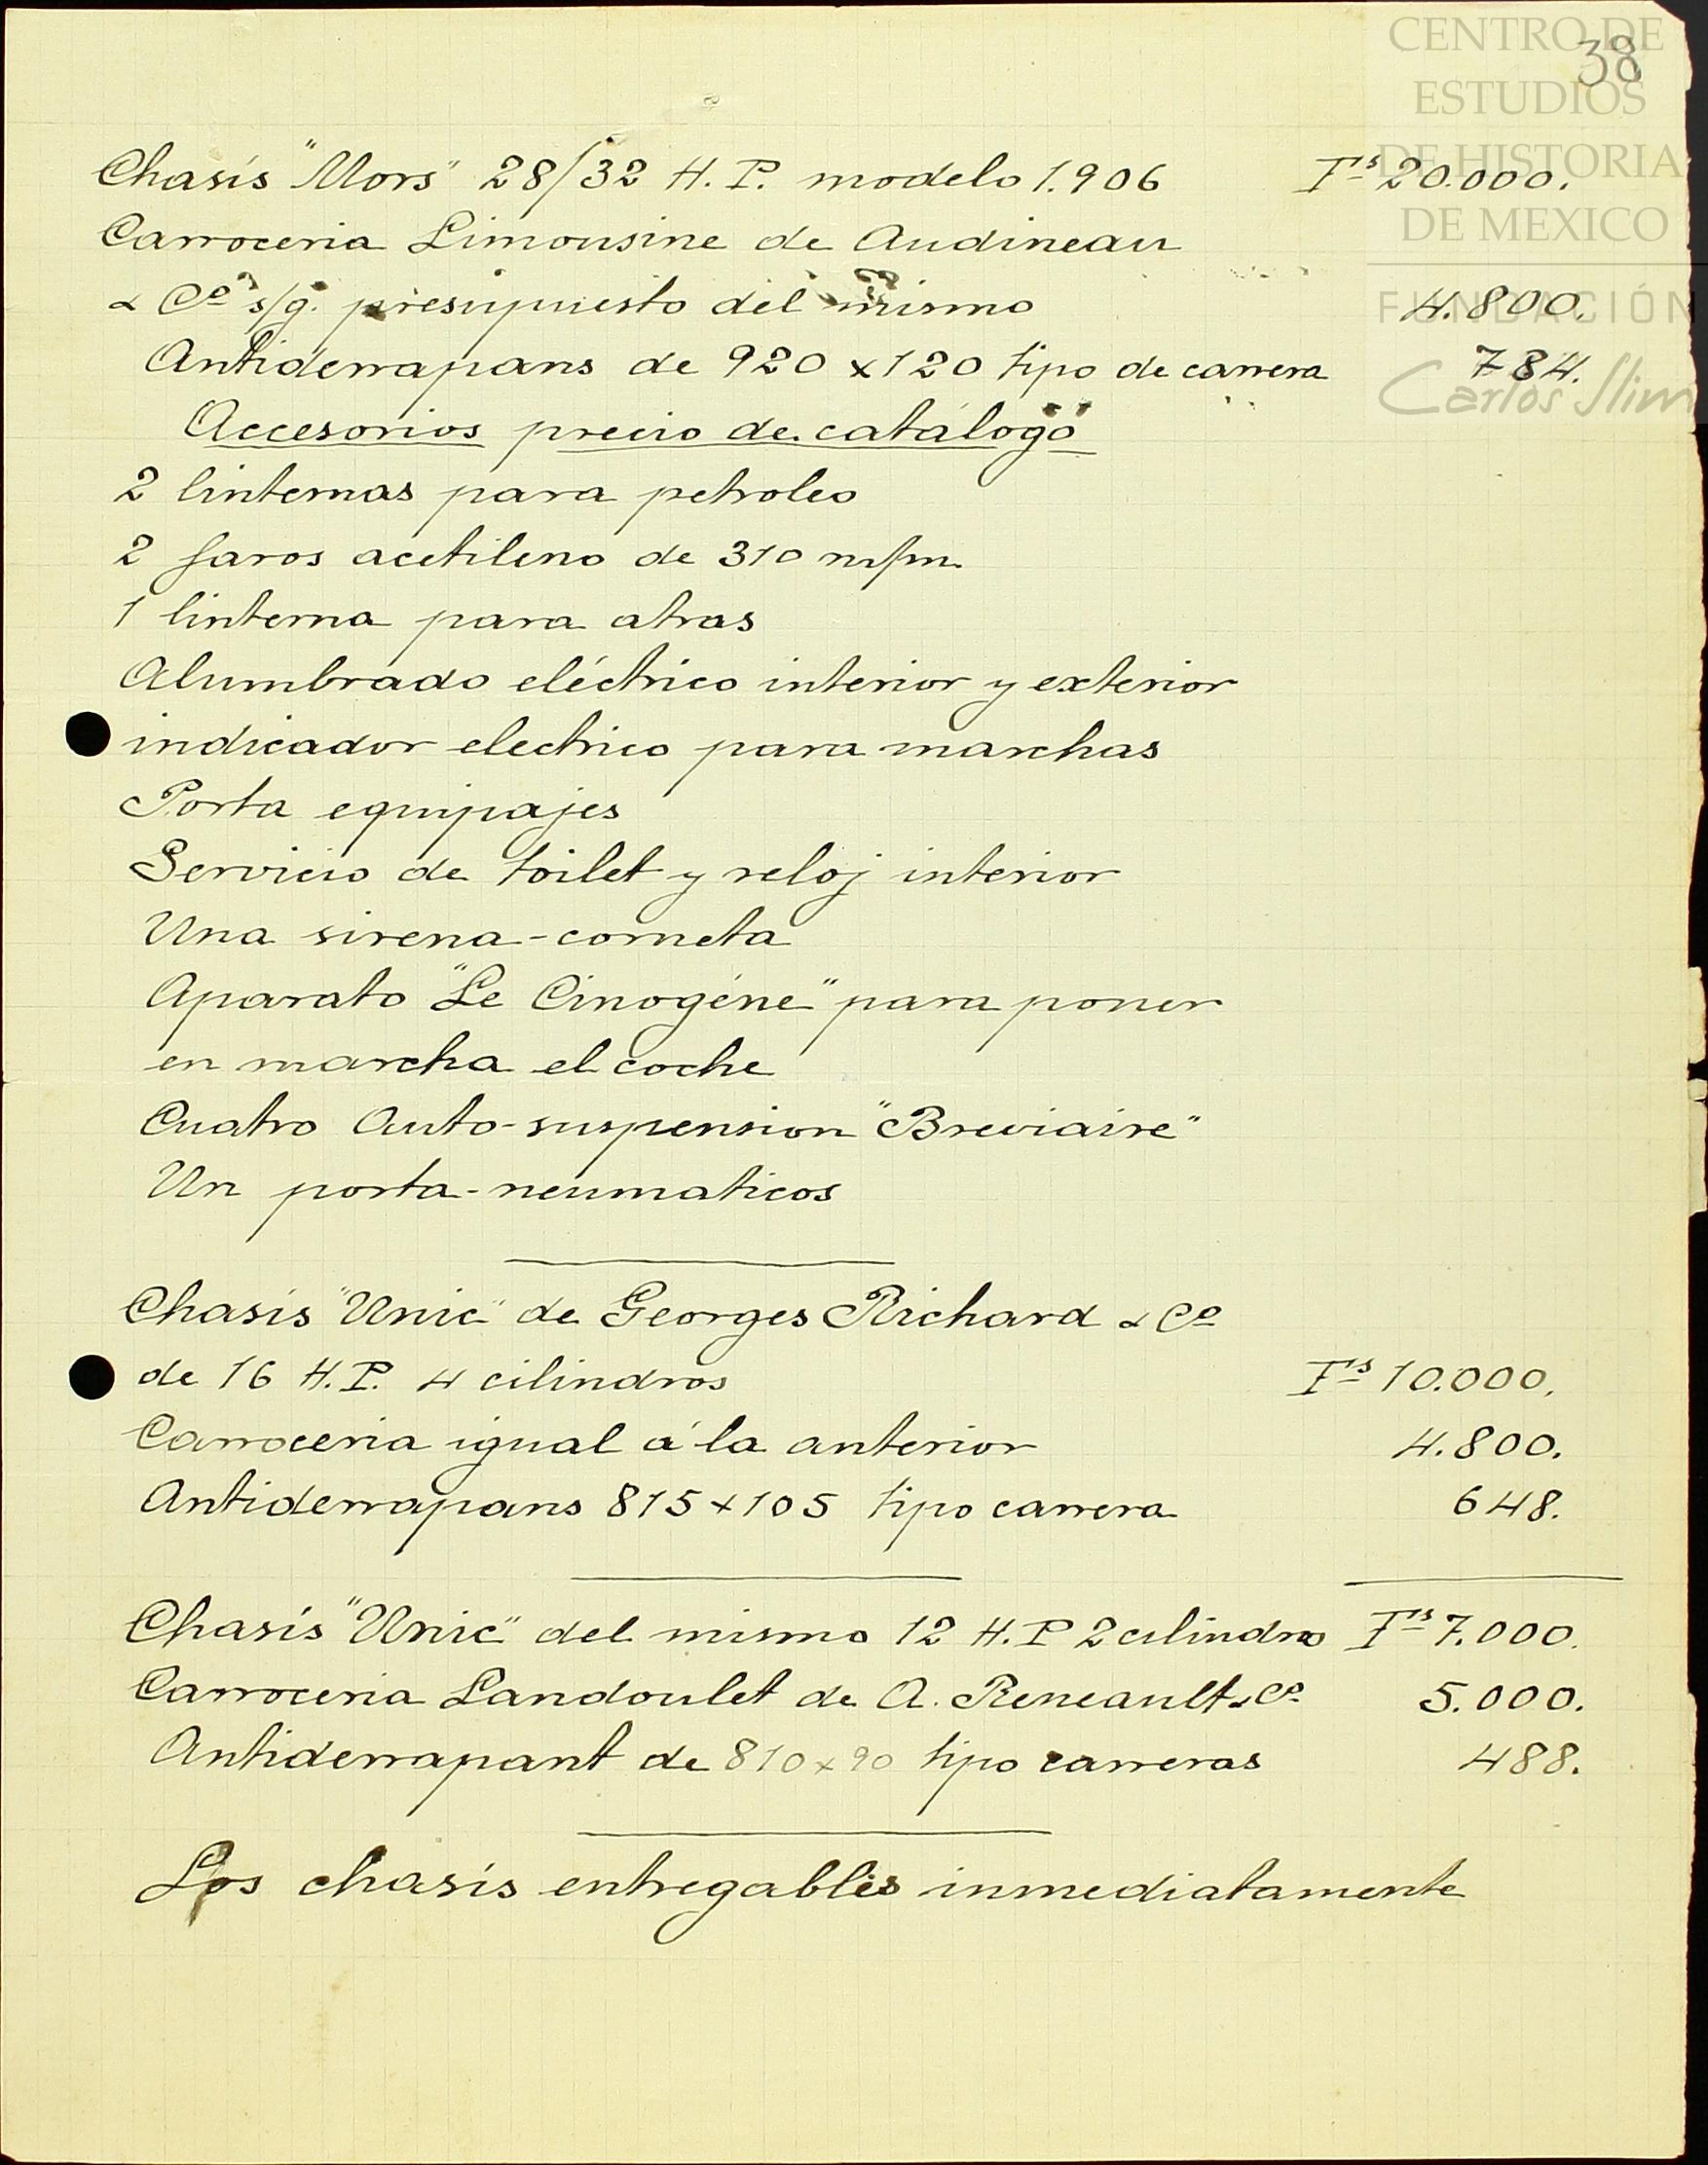 CENTRO DE
ESTUDIOS
DE HISTORIA
DE MEXICO
FUNDACIÓN
Carlos Slim
38
Chasis "Mors" 28/32 H.P. modelo 1.906 Frs 20.000.
Carroceria Limousine de Audineau
& Co s/g. presupuesto del mismo 4.800.
Antiderrapans de 920 x 120 tipo de carrera 784.
Accesorios precio de catálogo
2 linternas para petroleo
2 faros acetileno de 310 m/m.
1 linterna para atras
Alumbrado eléctrico interior y exterior
indicador electrico para marchas
Porta equipajes
Servicio de toilet y reloj interior
Una sirena-corneta
Aparato "Le Cinogéne" para poner
en marcha el coche
Cuatro Auto-suspension "Breviaire"
Un porta-neumaticos
Chasis "Unic" de Georges Richard & Co
de 16 H.P. 4 cilindros Frs 10.000.
Carroceria igual á la anterior 4.800.
Antiderrapans 815 x 105 tipo carrera 648.
Chasis "Unic" del mismo 12 H.P 2 cilindro Frs 7.000.
Carroceria Landoulet de A. Reneault & Co. 5.000.
Antiderrapant de 810 x 90 tipo carreras 488.
Los chasis entregables inmediatamente